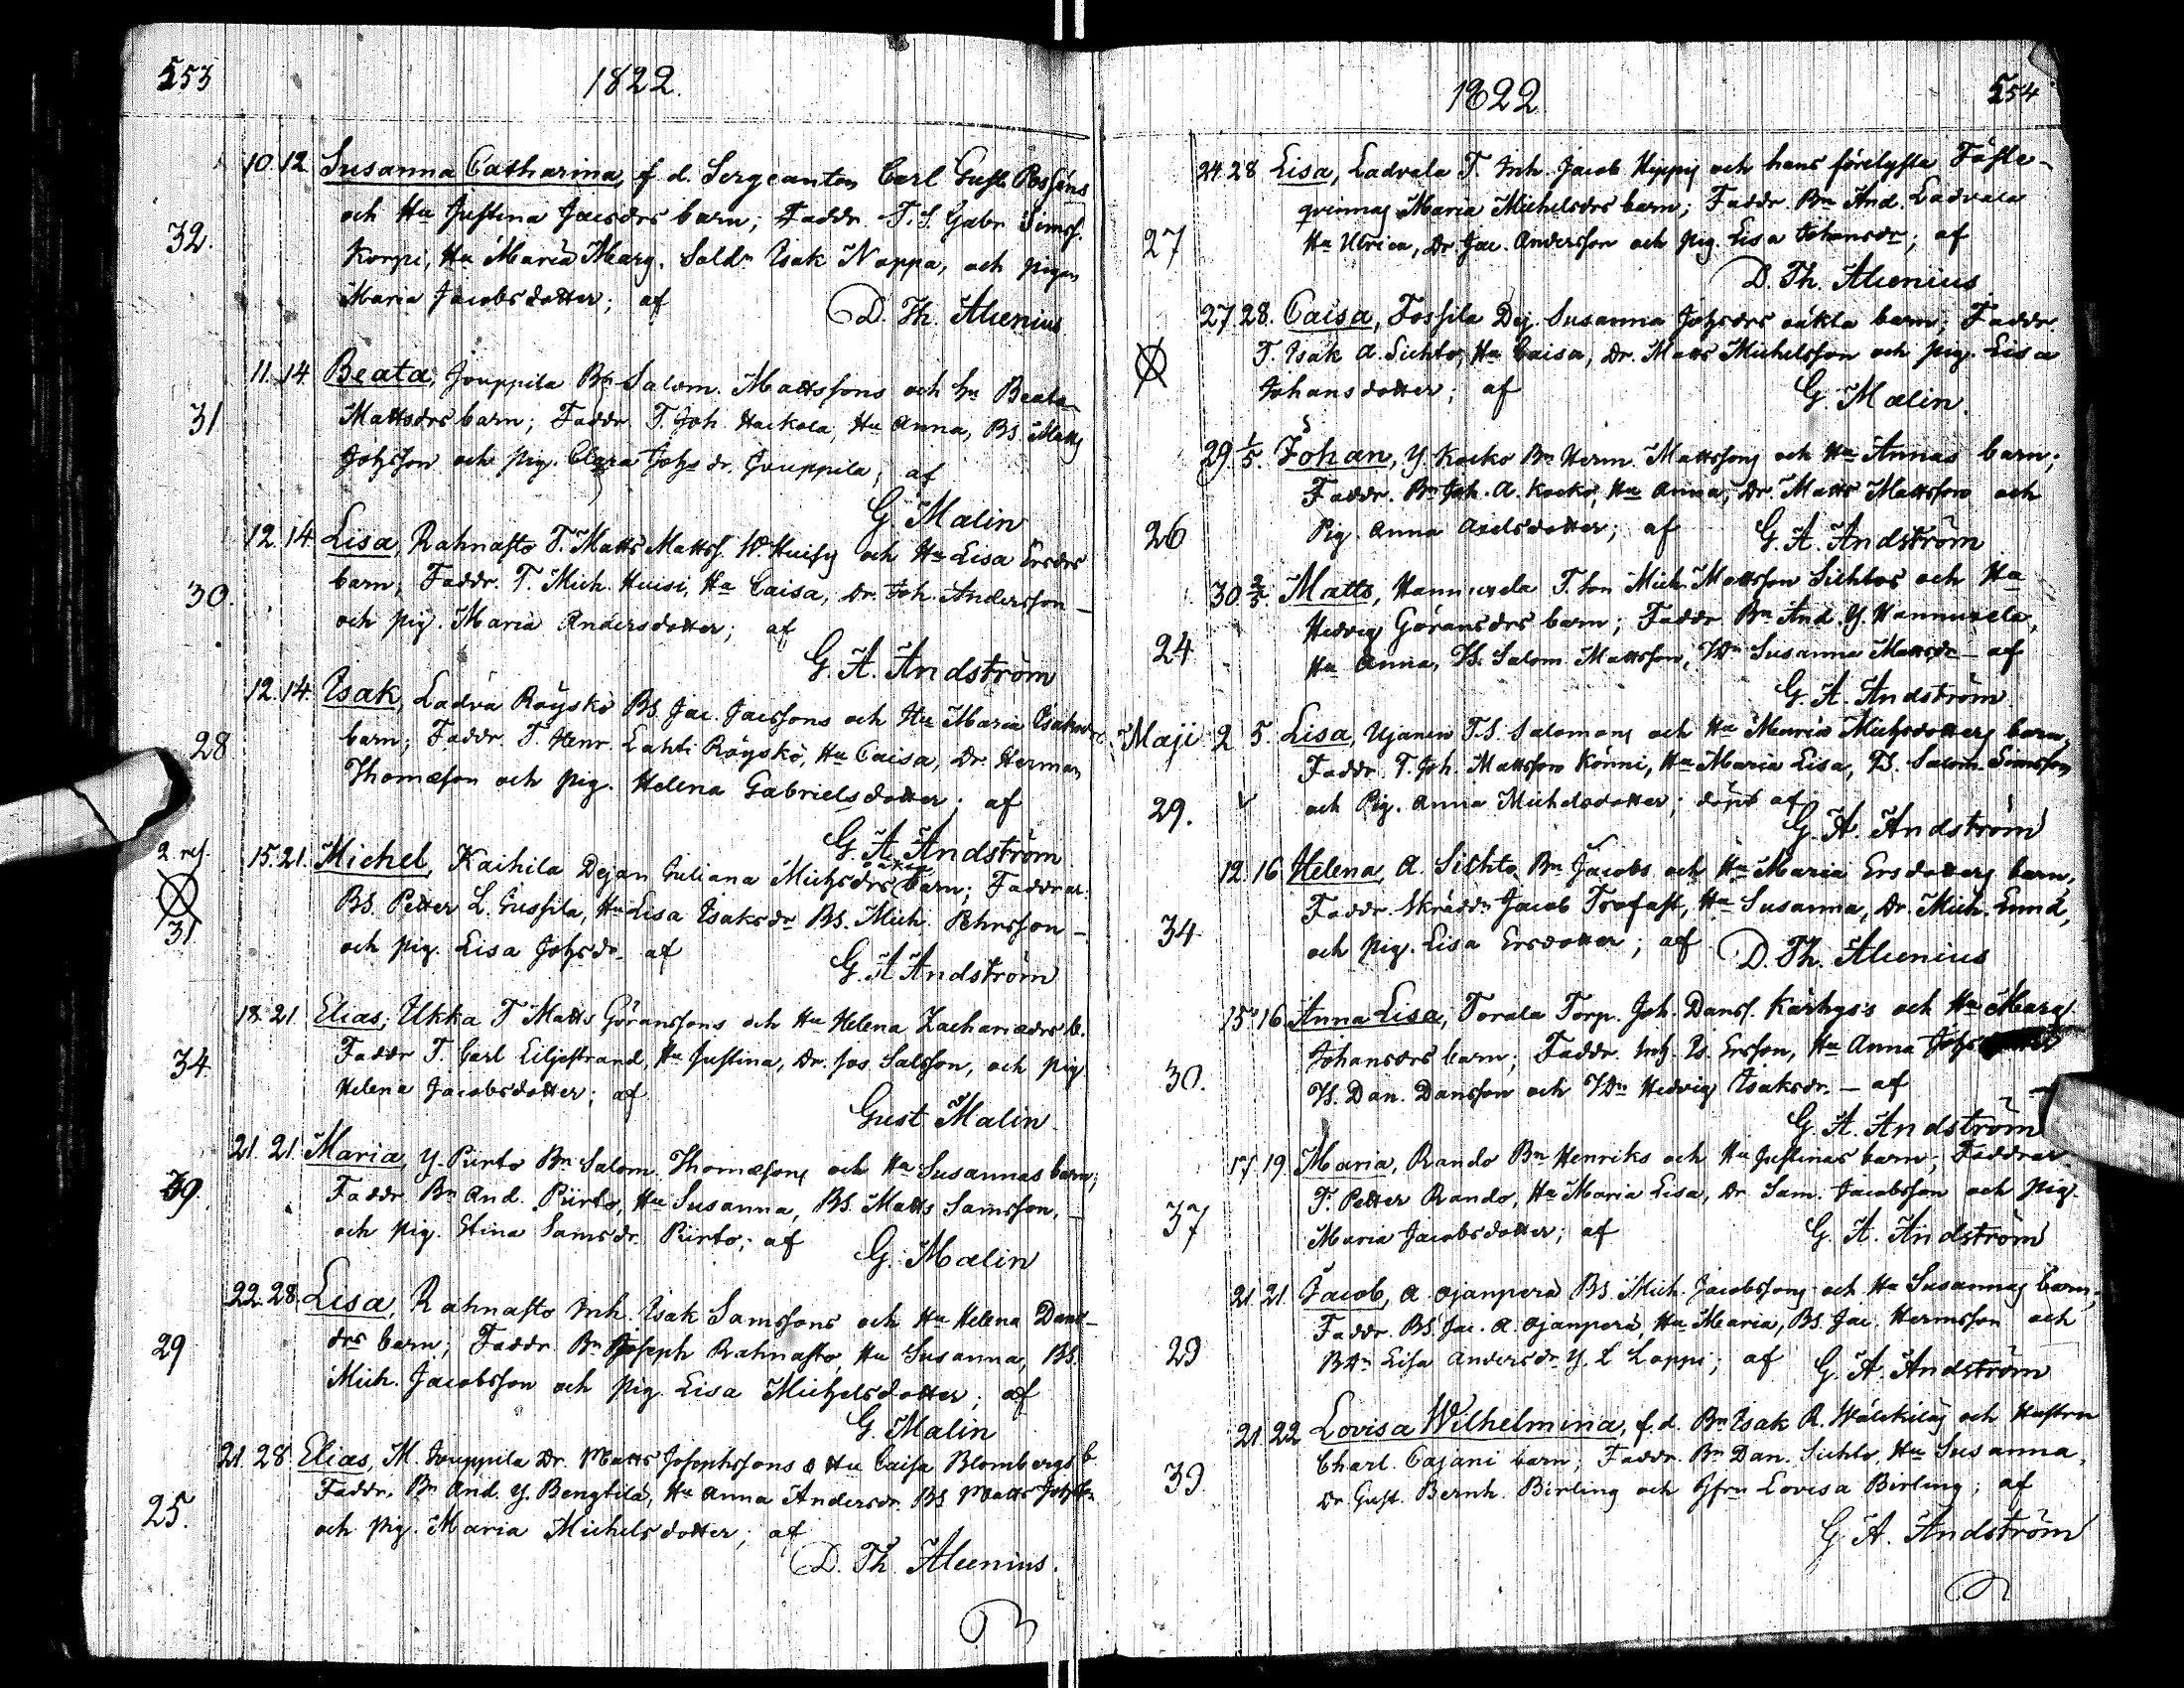 553
1822.
10. 12. Susanna Catharina, f. d. Sergeanten Carl Gust. Posséns
och Hu Justina Jacsdrs barn; Faddr. T. S. Gabr. Simss.
32.
Korpi, Hu Maria Marg. Soldn Isak Nappa, och pigan
Maria Jacobsdotter; af
D. Th. Alcenius
11. 14. Beata, Jouppila Bn Salom. Mattssons och Hu Beata
31
Mattsdrs barn; Faddr. T. Joh. Hackola, Hu Anna, BS. Matts
Johsson och pig. Clara Johs dr. Jouppila; af
G. Malin
12. 14. Lisa, Rahnasto T. Matts Mattss. W. Huisis och Hu Lisa Ersdrs
30.
barn; Faddr. T. Mich. Huisi, Hu Caisa, Dr. Joh. Andersson –
och pig. Maria Andersdotter; af
G. A. Andström
12. 14. Isak, Ladva Röyskö BS. Jac. Jacssons och Hu Maria Isaksdrs
28
barn; Faddr. T. Henr. Lahti Röyskö, Hu Caisa, Dr. Herman
Thomæson och pig. Helena Gabrielsdotter; af
G. A. Andström
2 rsf. 15. 21. Michel, Kaihila Dejan Juliana Michsdrs oäkta barn; Faddrar.
BS. Petter L. Gussila, Hu Lisa Isaksdr BS. Mich. Pehrsson –
31
och pig. Lisa Johsdr. af
G. A. Andström
18. 21. Elias, Ukka T Matts Göranssons och Hu Helena Zachariædrs b.
34
Faddr T. Carl Liljestrand, Hu Justina, Dr. Jos. Salsson, och pig.
Helena Jacobsdotter; af
Gust Malin
21. 21. Maria, Y. Piirto Bn Salom. Thomæsons och Hu Susannas barn;
39.
Faddr. Bn And. Piirto, Hu Susanna, BS. Matts Samsson, –
och pig. Stina Samsdr. Piirto; af
G. Malin
22. 28. Lisa, Rahnasto Inh. Isak Samssons och Hu Helena Dans-
29
drs barn; Faddr. Bn Joseph Rahnasto, Hu Susanna, BS.
Mich. Jacobsson och pig. Lisa Michelsdotter; af
G. Malin
21. 28. Elias, M. Jouppila Dr. Matts Josephssons & Hu Caisa Blombergs b.
25.
Faddr. Bn And. Y. Bengtilä, Hu Anna Andersdr. BS Matts
och pig. Maria Michelsdotter; af
D. Th. Alcenius.
1822.
554
24 28 Lisa, Ladvala T. Inh. Jacob Hippis och hans förelysta Fäste-
qvinnas Maria Michelsdrs barn; Faddr. Bn And. Ladvala
27
Hu Ulrica, Dr. Jac. Andersson och pig. Lisa Johansdr; af
D. Th. Alcenius.
27. 28. Caisa, Fossila Dej. Susanna Johsdrs oäkta barn; Faddr.
T. Isak A. Sichto, Hu Caisa, Dr. Matts Michelsson och pig. Lisa
Johansdotter; af
G. Malin.
29. 1/5. Johan, Y. Kocko Bn Herm. Mattssons och Hu Annas barn;
Faddr. Bn Joh. A. Kocko, Hu Anna, Dr. Matts Mattsson och
26
Pig Anna Axelsdotter; af
G. A. Andström
30. 2/5. Matts, Hannuxela T. Mich. Mattsson Sichtos och Hu
Hedvig Göransdrs barn; Faddr. Bn And. Y. Hannuxela,
24
Hu Anna, TS. Salom. Mattsson, Susanna Mattsdr – af
G. A. Andström
Maji 2 5. Lisa, Ujanen T.S. Salomons och Hu Maria Michsdotters barn,
Faddr. T. Joh. Mattsson Könni, Hu Maria Lisa, TS. Salom. Simsson
29.
och Pig. Anna Michelsdotter; döpt af
G. A. Andström
12. 16 Helena, A. Sichto Bn Jacobs och Hu Maria Ersdotters barn,
Faddr. Skräddn Jacob Trofast, Hu Susanna, Dr. Mich. Lund,
34
och pig. Lisa Ersdotter; af
D. Th. Alcenius
15. 16 Anna Lisa, Torala Torp. Joh. Danss. Kärhys's och Hu Marg
Johansdrs barn; Faddr. Inh. Is. Ersson, Hu Anna Johs
30.
TS. Dan. Dansson och Hedvig Isaksdr. – af
G. A. Andström
17. 19. Maria, Rando Bn Henriks och Hu Justinas barn; Faddrar
T. Petter Rando, Hu Maria Lisa, Dr. Sam. Jacobsson och pig.
37
Maria Jacobsdotter; af
G. A. Andström
21. 21. Jacob, A. Ojanperä BS. Mich. Jacobssons och Hu Susannas barn;
Faddr. BS. Jac. A. Ojanperä, Hu Maria, BS. Jac. Hermsson och
29
Lisa Andersdr. Y. L Loppi; af
G. A. Andström
21. 22 Lovisa Wilhelmina, f. d. Bn Isak R. Wälikiläs och Hustru
Charl. Cajani barn; Faddr. Bn Dan. Sichto, Hu Susanna,
39.
Dr. Gust. Bernh. Birling och Jfrn Lovisa Birling; af
G. A. Andström